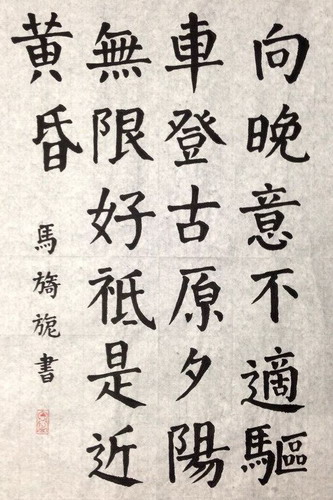 向晚意不適驅
車登古原夕陽
無限好祇是近
黃昏
馬旖旎書